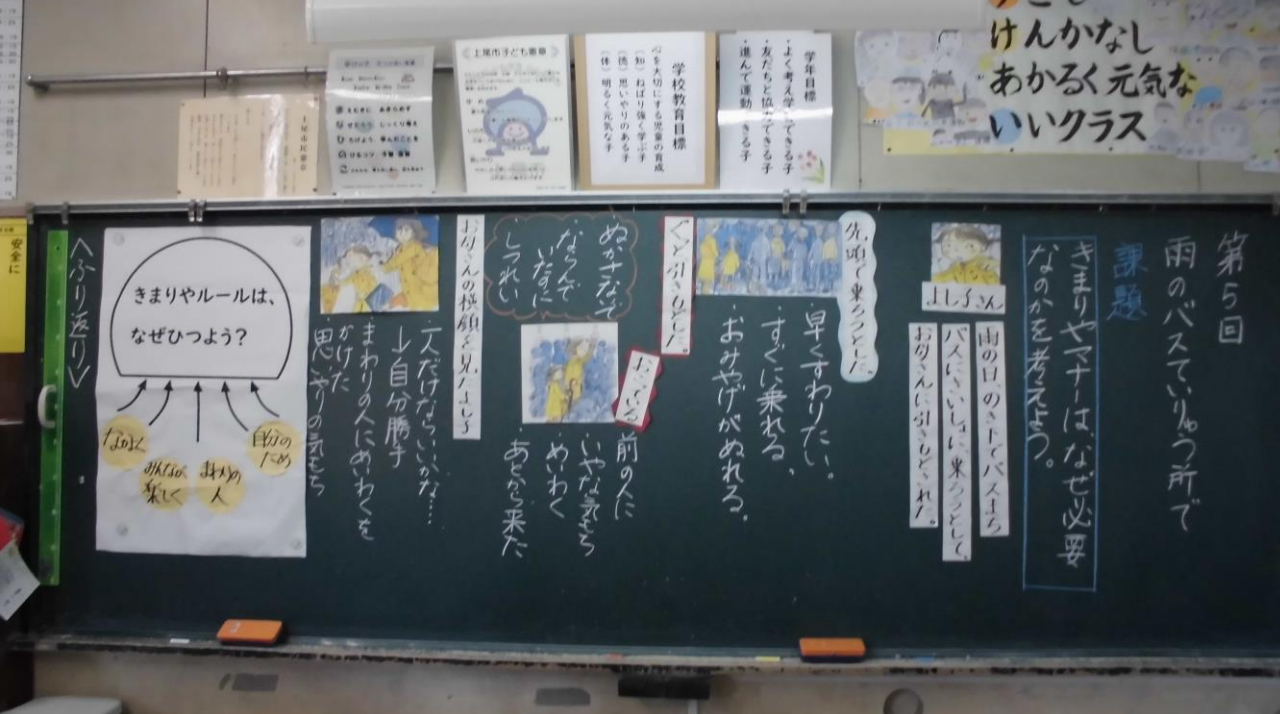 けんかなし
あかるく元気な
いいクラス
学年目標
・よく考え学
できる子
・友だちと協力できる子
・進んで運動
きる子
学校教育目標
心を大切にする児童の育成
(知) ねばり強く学ぶ子
(徳) 思いやりのある子
(体) 明るく元気な子
上尾市子ども憲章
上尾市民憲章
安全に
第5回
雨のバスていりゅう所で
課題
きまりやマナーは、なぜ必要
なのかを考えよう。
よし子さん
雨の日、のき下でバスまち
バスにいちばんに乗ろうとして、
お母さんに引きもどされた。
先頭で乗ろうとした。
・早くすわりたい。
・すぐに乗れる。
・おみやげがぬれる。
ぐいと引きもどした。
おこってる
・前の人に
いやな気もち
・めいわく
・あとから来た
・ぬかさないで
・ならんで
いたのに
・しつれい
お母さんの横顔を見たよし子
・一人だけならいいかな…
→自分勝手
まわりの人にめいわくを
かけた
思いやりの気もち
きまりやルールは、
なぜひつよう?
自分の
ため
まわりの
人
みんなが
楽しく
なかよく
<ふり返り>